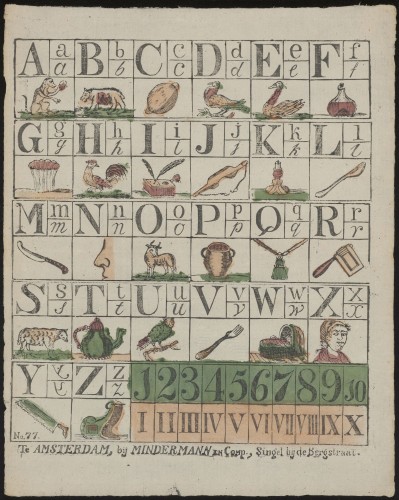 A a a B b b C c c D d d E e e F f f
G g g H h h I i i J j j K k k L l l
M m m N n n O o o P p p Q q q R r r
S s s T t t U u u V v v W w w X x x
Y y y Z z z 1 2 3 4 5 6 7 8 9 10
I II III IV V VI VII VIII IX X
No. 77.
Te AMSTERDAM, by MINDERMANN en Comp., Singel by de Bergstraat.